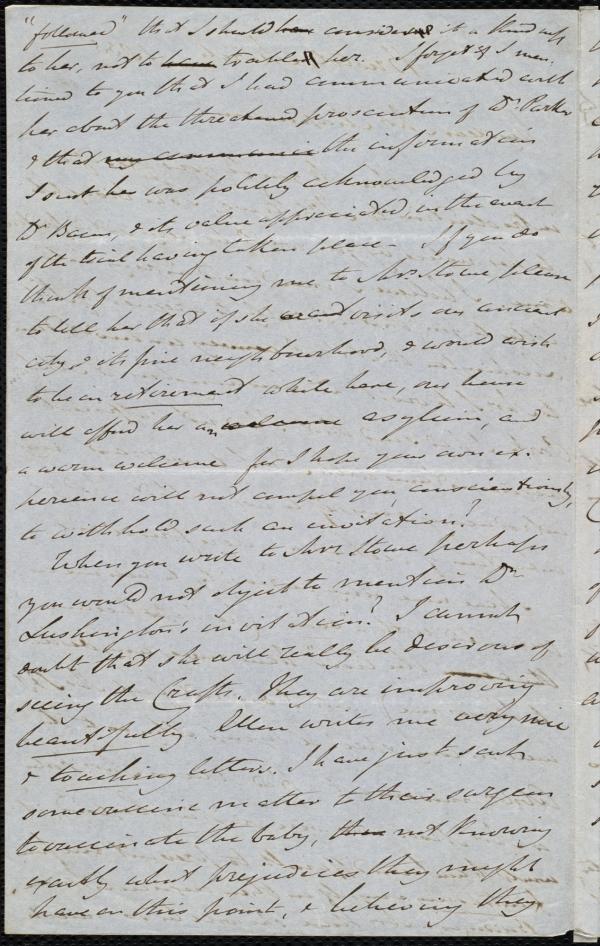 "followed" that I should have considered it a kindness
to her, not to have trouble her. I forget if I men-
tioned to you that I had communicated with
her about the threatened prosecution of Dr. Parker
& that my communica the information
I sent her was politely acknowledged by
Dr Bacon, & its value appreciated, in the event
of the trial having taken place - If you do
think of mentioning me to Mrs. Stowe, please
to tell her that if she visits our ancient
city, & its fine neighbourhood, & would wish
to be in retirement while here, our house
will afford her an welcome asylum, and
a warm welcome for I hope your own ex-
perience will not compel you, conscientiously,
to withhold such an invitation?
When you write to Mrs Stowe perhaps
you would not object to mention Dr.
Lushington's invitation? I cannot
doubt that she will really be desirous of
seeing the Crafts. They are improving
beautifully Ellen writes me a very nice
& touching letter. I have just sent
some vaccine matter to their surgeon
to vaccinate the baby, not knowing
exactly what prejudices they might
have on this point, & believing they